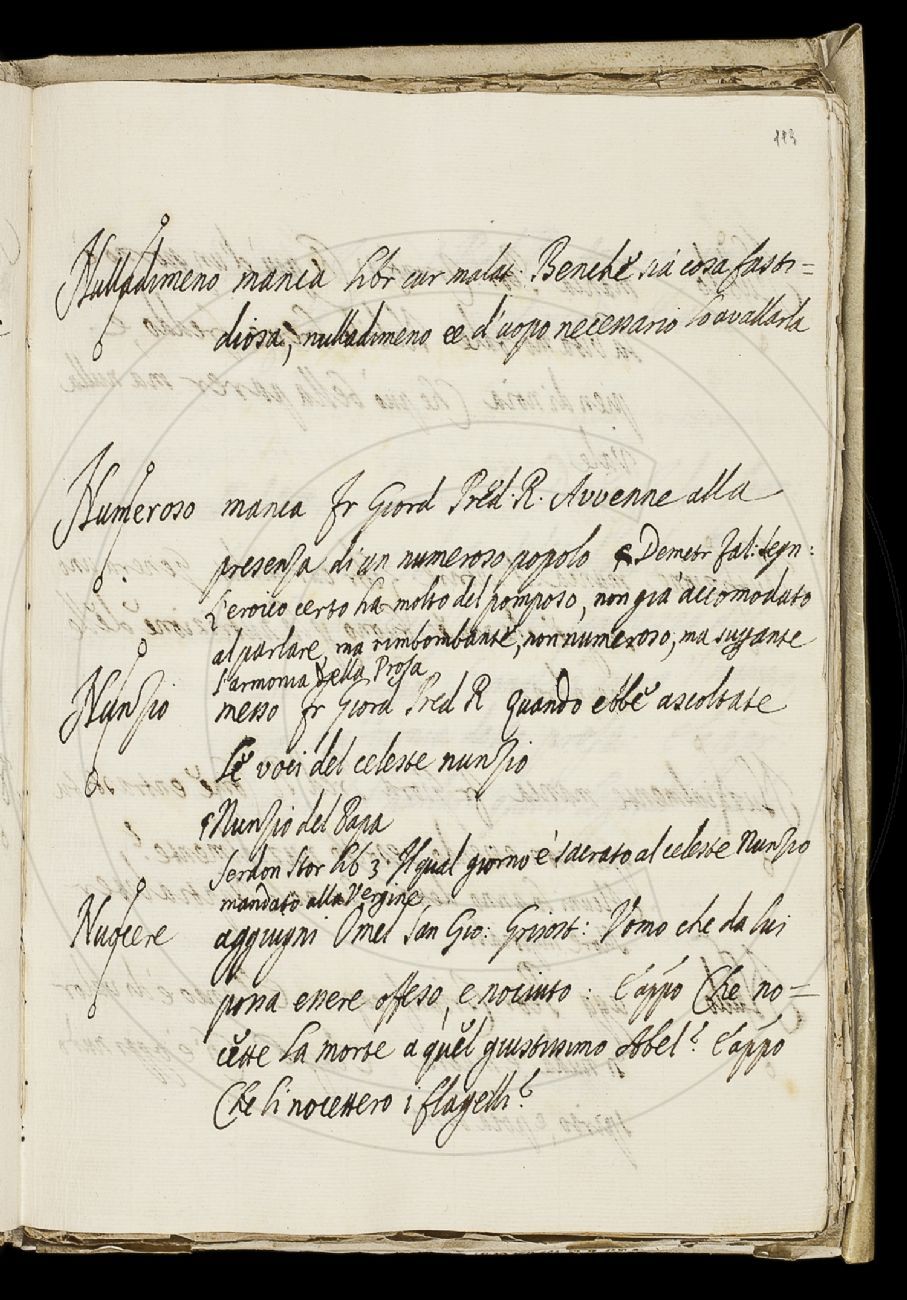 113
Nulladimeno manca libr cur malat: Benche sia cosa fasti=
diosa, nulladimeno ee d'uopo necessario lo avallarla
Numeroso manca fr Giord Pred. R. Avvenne alla
presenza di un numeroso popolo Demetr fal: segn:
L'eroico certo ha molto del pomposo, non già accomodato
al parlare, ma rimbombante, non numeroso, ma
l'armonia della Prosa
Nunzio messo fr Giord Pred R quando ebbe ascoltate
le voci del celeste nunzio
Nunzio del Papa
Serdon Stor lib 3. Il qual giorno è sacrato al celeste Nunzio
mandato alla Vergine
Nuocere aggiugni Omel San Gio: Grisost: Uomo che da lui
possa essere offeso, e nociuto: e appo Che no=
cette la morte a quel giustissimo Abel? e appo
Che li nocettero i flagelli?